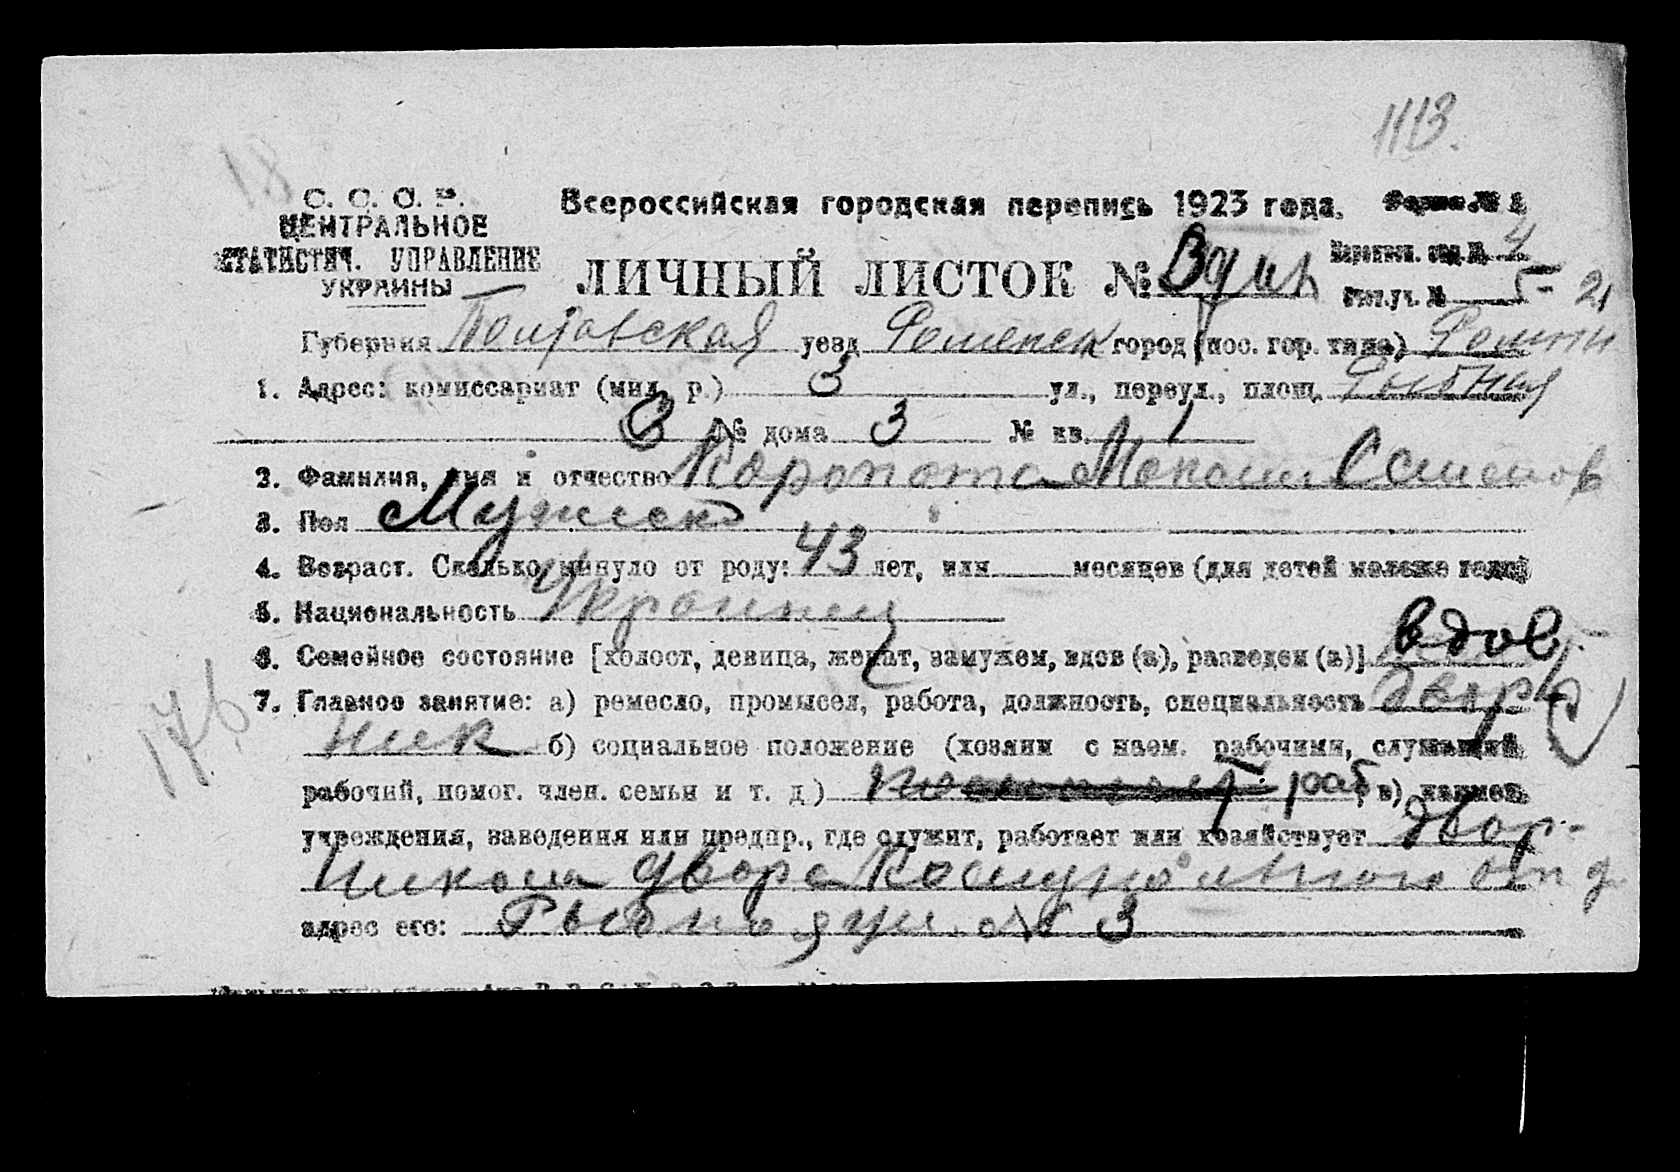 1113.
18
С. С. С. Р.
ЦЕНТРАЛЬНОЕ
СТАТИСТИЧ. УПРАВЛЕНИЕ
УКРАИНЫ
Всероссийская городская перепись 1923 года. Форма № 1
ЛИЧНЫЙ ЛИСТОК № 4
5-21
Губерния Полтавская уезд Роменск город (пос. гор. типа) Ромны
1. Адрес: комиссариат (мил. р.) 3 ул., переул., площ. Рыбная
3 № дома 3 № кв. 1
2. Фамилия, имя и отчество Семенов
3. Пол Мужск
4. Возраст. Сколько минуло от роду: 43 лет, или месяцев (для детей моложе года)
5. Национальность Украинец
6. Семейное состояние [холост, девица, женат, замужем, вдов (а), разведен (а)] вдов
176
7. Главное занятие: а) ремесло, промысел, работа, должность, специальность двор
ник б) социальное положение (хозяин с наем. рабочими, служащий
рабочий, помог. член. семьи и т. д.) раб в) наимен.
учреждения, заведения или предпр., где служит, работает или хозяйствует двор-
двора Комунального отд
адрес его: Рыбная ул. № 3